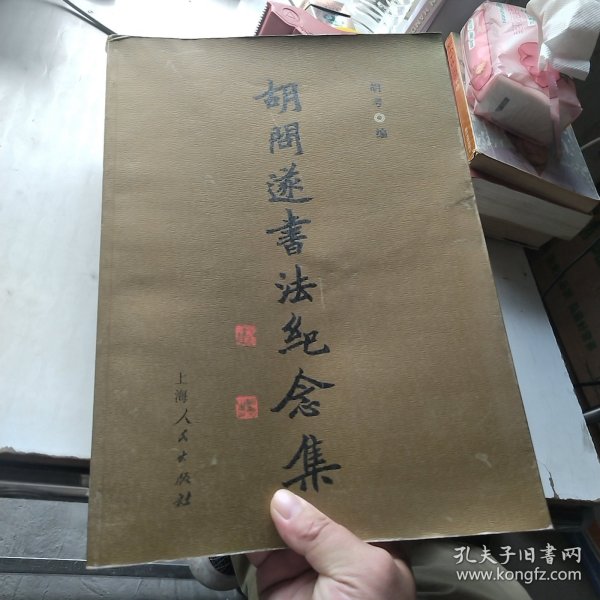 胡考 编
胡問遂書法紀念集
上海人民出版社
孔夫子旧书网
www.kongfz.com